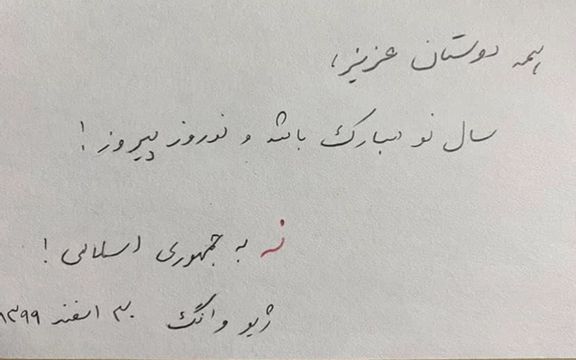 همه دوستان عزیز،
سال نو مبارک باشد و نوروز پیروز!
نه به جمهوری اسلامی!
ژیو وانگ ۳۰ اسفند ۱۳۹۹